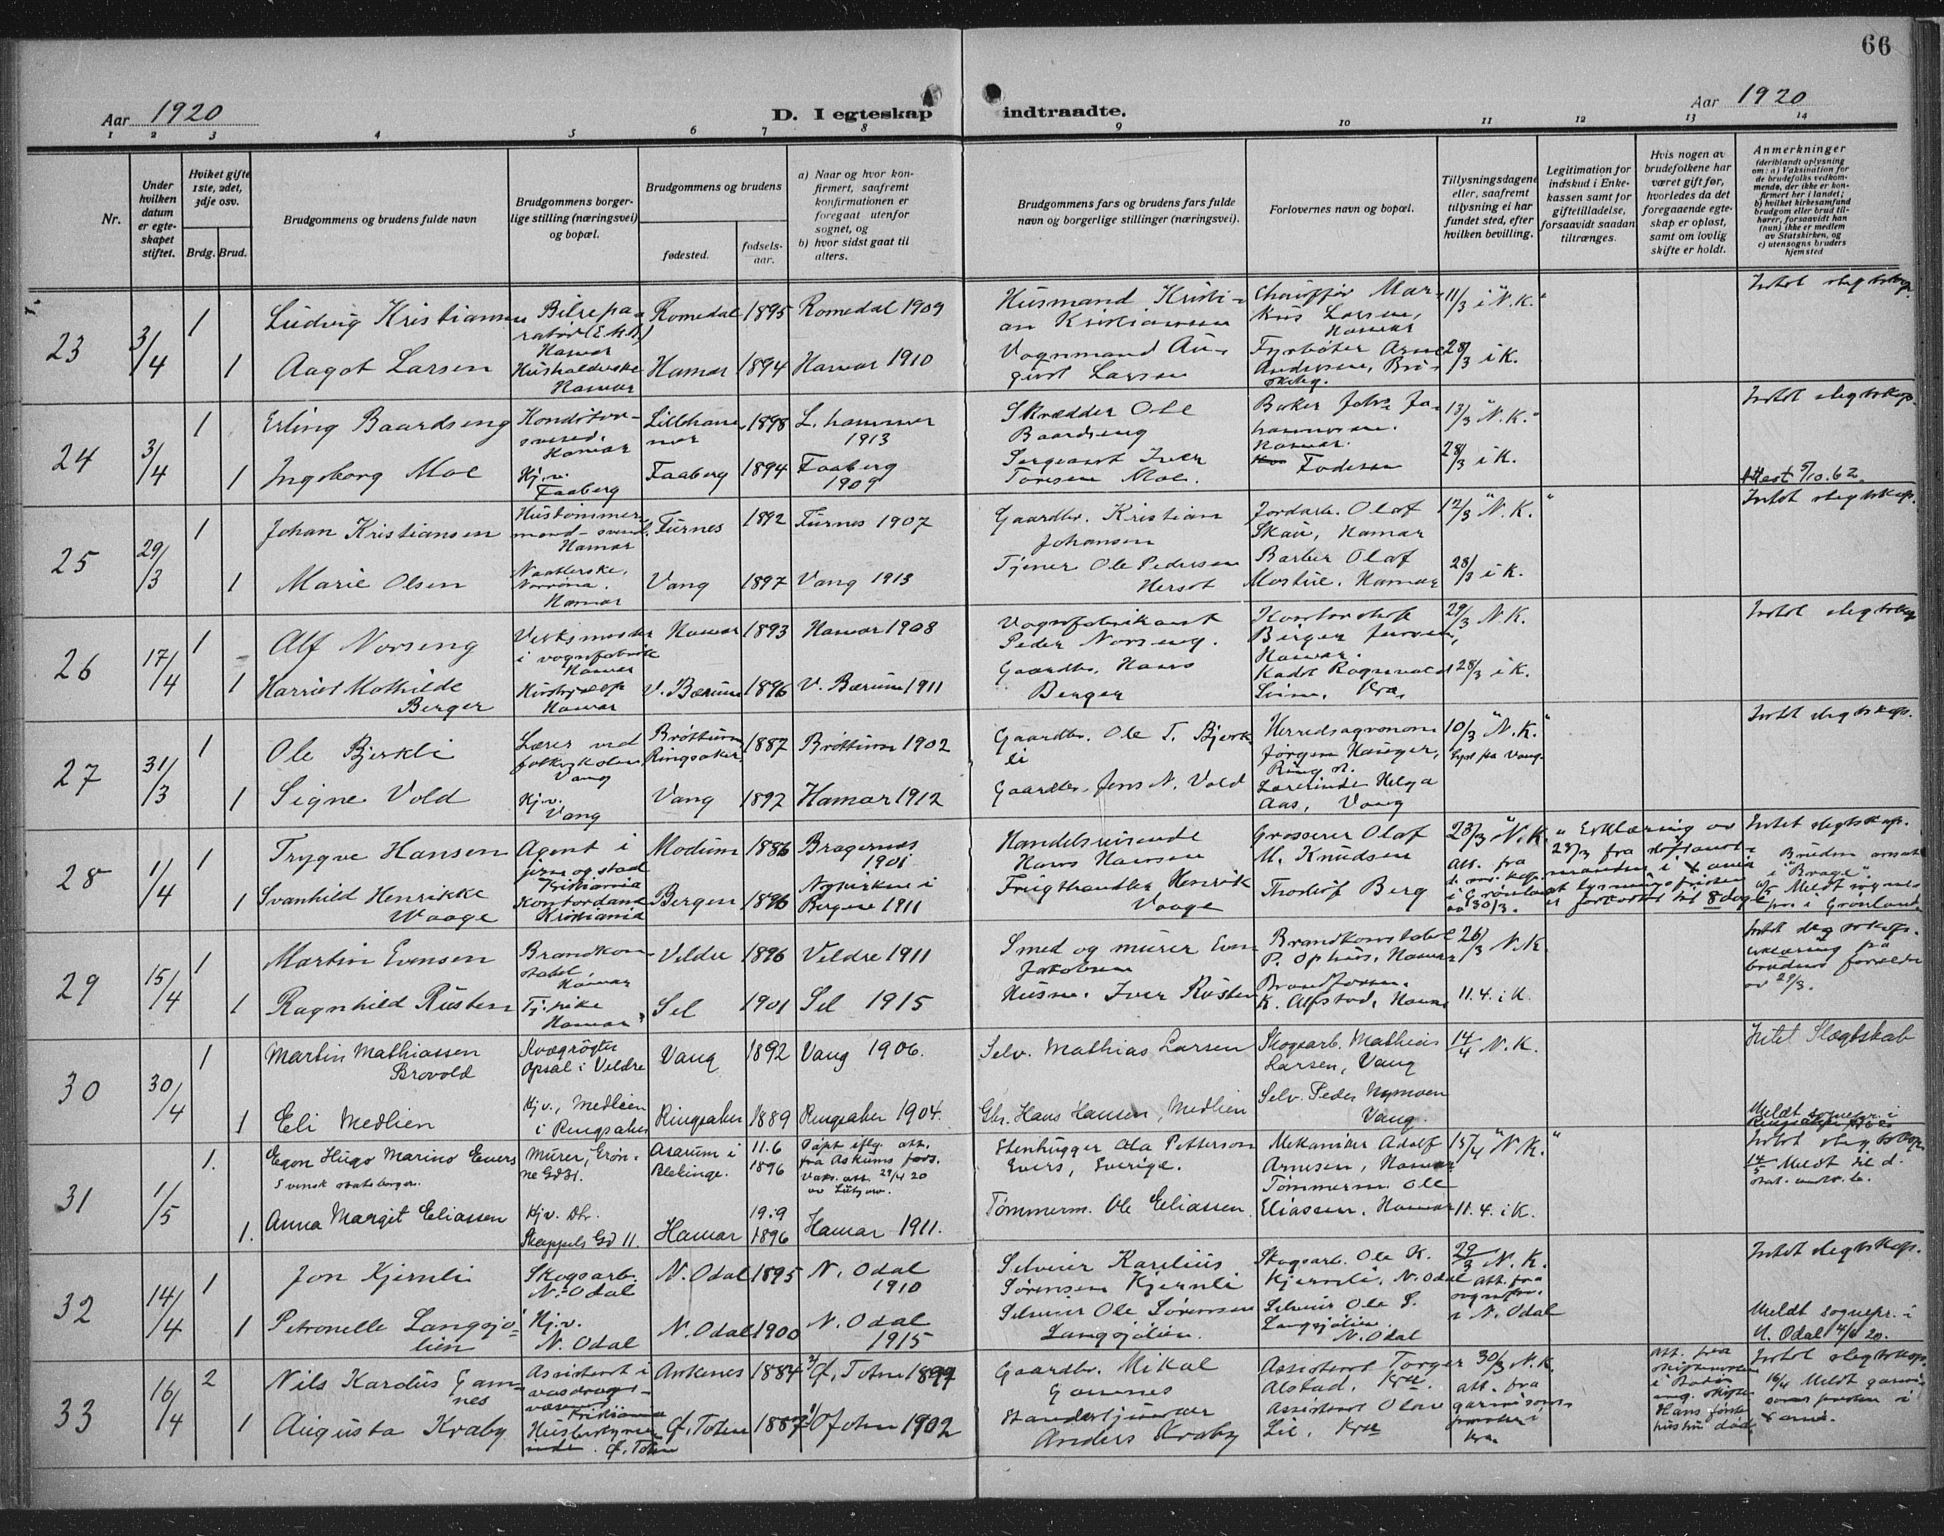 66
Aar 1920
D. I egteskap indtraadte.
Aar 1920
1 2 3 4 5 6 7 8 9 10 11 12 13 14
Nr.
Under
hvilken
datum
er egte-
skapet
stiftet.
Hviket gifte
1ste, 2det,
3dje osv.
Brdg. Brud.
Brudgommens og brudens fulde navn
Brudgommens borger-
lige stilling (næringsvei)
og bopæl.
Brudgommens og brudens
fødested.
fødsels-
aar.
a) Naar og hvor kon-
firmert, saafremt
konfirmationen er
foregaat utenfor
sognet, og
b) hvor sidst gaat til
alters.
Brudgommens fars og brudens fars fulde
navn og borgerlige stillinger (næringsvei).
Forlovernes navn og bopæl.
Tillysningsdagene
eller, saafremt
tillysning ei har
fundet sted, efter
hvilken bevilling.
Legitimation for
indskud i Enke-
kassen samt for
giftetilladelse,
forsaavidt saadan
tiltrænges.
Hvis nogen av
brudefolkene har
været gift før,
hvorledes da det
foregaaende egte-
skap er opløst,
samt om lovlig
skifte er holdt.
Anmerkninger
(deriblandt oplysning
om: a) Vaksination for
de brudefolks vedkom-
mende, der ikke er kon-
firmert her i landet;
b) hvilket kirkesamfund
brudgom eller brud til-
hører, forsaavidt han
(hun) ikke er medlem
av Statskirken, og
c) utensogns bruders
hjemsted
23 3/4 1 Ludvig Kristiansen
Bilrepa
Hamar
Romedal 1895 Romedal 1909
Husmand Kristi-
an Kristiansen
Chauffør Mar-
kus Larsen,
Hamar
11/3 i "N.K."
Intet slegtskap.
1 Aagot Larsen
Husholderske
Hamar
Hamar 1894 Hamar 1910
Vognmand Au-
gust Larsen
Fyrbøter Arne
Andersen,
28/3 i K.
24 3/4 1 Erling Baardseng
Konditor-
svend.
Hamar
Lilleham-
mer
1898 L. hammer
1913
Skrædder Ole
Baardseng
Baker Johs Jo-
hannesen.
Hamar.
13/3 "N.K."
Intet slegtskap.
1 Ingeborg Moe
Hj.v.
Faaberg
Faaberg 1894 Faaberg
1909
Sergeant Iver
Toresen Moe.
Fadesen
28/3 i K.
Attest 5/10.62.
25 29/3 1 Johan Kristiansen
Hustømmer-
mand - svend.
Hamar
Furnes 1892 Furnes 1907
Gaardbr. Kristian
Johansen
Jordarb. Olaf
Skau, Hamar
12/3 "N.K."
Intet slegtskap.
1 Marie Olsen
Hamar
Vang 1897 Vang 1913
Tjener Ole Pedersen
Hersot
Barber Olaf
Hamar
28/3 i K.
26 17/4 1 Alf Norseng
Verksmester
i vognfabrik
Hamar
Hamar 1893 Hamar 1908
Vognfabrikant
Peder Norseng.
Kontorchef
Birger
Hamar.
29/3 N.K.
Intet slegtskap
1 Harriet Mathilde
Berger
Hamar
V. Bærum 1896 V. Bærum 1911
Gaardbr. Hans
Berger
Kadet Ragnvald
Kra.
28/3 i K.
27 31/3 1 Ole Bjerkli
Lærer ved
folkeskolen
Vang
Brøttum
Ringsaker
1887 Brøttum 1902
Gaardbr. Ole T. Bjerk-
li
Herredsagronom
Jørgen Hauger,
Ring s.
10/3 "N.K."
lyst paa Vang.
Intet slegtskap.
1 Signe Vold
Hj.v.
Vang
Vang 1892 Hamar 1912
Gaardbr. Jens N. Vold
Lærerinde Helga
Aas, Vang
28 1/4 1 Trygve Hansen
Agent i
jern og staal
Kristiania
Modum 1886 Bragernes
1901
Handelsreisende
Hans Hansen
Grosserer Olaf
M. Knudsen
23/3 "N.K."
att. fra
Erklæring av
23/3 fra
Intet slegtskap.
1 Svanhild Henrikke
Waage
Kontordame
Kristiania
Bergen 1896 Nykirken i
Bergen 1911
Frugthandler Henrik
Vaage
Thorleif Berg
i Grønland
av 30/3.
lysningsfristen
er forkortet til 8 dage
Meldt sognepr.
i Grønland
29 15/4 1 Martin Evensen
Brandkon-
stabel,
Hamar
Veldre 1896 Veldre 1911
Smed og murer Even
Jakobsen
Brandkonstabel
P. Ophus, Hamar
26/3 N.K.
Intet slegtskap.
erklæring fra
brudens forældre
av 29/3.
1 Ragnhild Rusten
Hamar
Sel 1901 Sel 1915
Husm. Iver Rusten
K. Alfstad, Hamar
11.4. i K.
30 30/4 1 Martin Mathiassen
Brovold
Kvægrøgter
Opsal i Veldre
Vang 1892 Vang 1906.
Selv. Mathias Larsen
Skogsarb. Mathias
Larsen, Vang
14/4 N.K.
Intet Slegtskab
1 Eli Medlien
Hj.v., Medlien
i Ringsaker
Ringsaker 1889 Ringsaker 1904.
Gbr. Hans Hansen, Medlien
Selv. Peder Nymoen
Vang.
Meldt sognepr. i
31 1/5 1. Egon Hugo Marino Evers
Svensk statsborger.
Murer, Grøn-
ne Gd 31.
Asarum i
Blekinge.
11.6
1896
Døpt iflg. att.
fra Askums fors.
Vaks. att. 29/4 20
Stenhugger Ola Petterson
Evers, Sverige.
Mekaniker Adolf
Arnesen, Hamar
15/4 "N.K."
Intet slegtskap
14/5 Meldt til d.
1. Anna Margit Eliassen
Hj.v. Dtr.
Skappels Gd 11.
Hamar 19.9
1896 Hamar 1911.
Tømmerm. Ole Eliassen.
Tømmerm Ole
Eliassen, Hamar
11.4. i K.
32 14/4 1 Jon Kjernli
Skogsarb.
N.-Odal
N. Odal 1895 N. Odal
1910
Selveier Karelius
Sørensen Kjernli
Skogsarb. Ole K.
Kjernli, N. Odal
29/3 N.K.
att. fra
sognepr.
i N. Odal
Intet slegtskap.
1 Petronelle Langsjø-
lien
Hj.v.
N. Odal
N. Odal 1900 N. Odal
1915
Selveier Ole Sørensen
Langsjølien.
Selveier Ole S.
Langsjølien.
N. Odal
Meldt sognepr. i
N. Odal 4/6 20.
33 16/4 2 Nils Kardus Gam-
nes
Assistent i
vasdrags-
væsenet
Kristiania
Ankenes 1884 Ø. Toten 1899
Gaardbr. Mikal
Gamnes
Assistent Torger
Alstad. Kra
30/3 N.K.
att. fra
garnisons-
presten i
Kra.
att. fra
skifteretten
Hans første
hustru død.
Intet slegtskap.
16/4 Meldt garni-
sons presten i
1 Augusta Kraby
Husbestyrer-
inde. Ø. Toten
Ø. Toten 1887 Ø Toten 1902
Anders Kraby
Assistent Olav
Lie, Kra